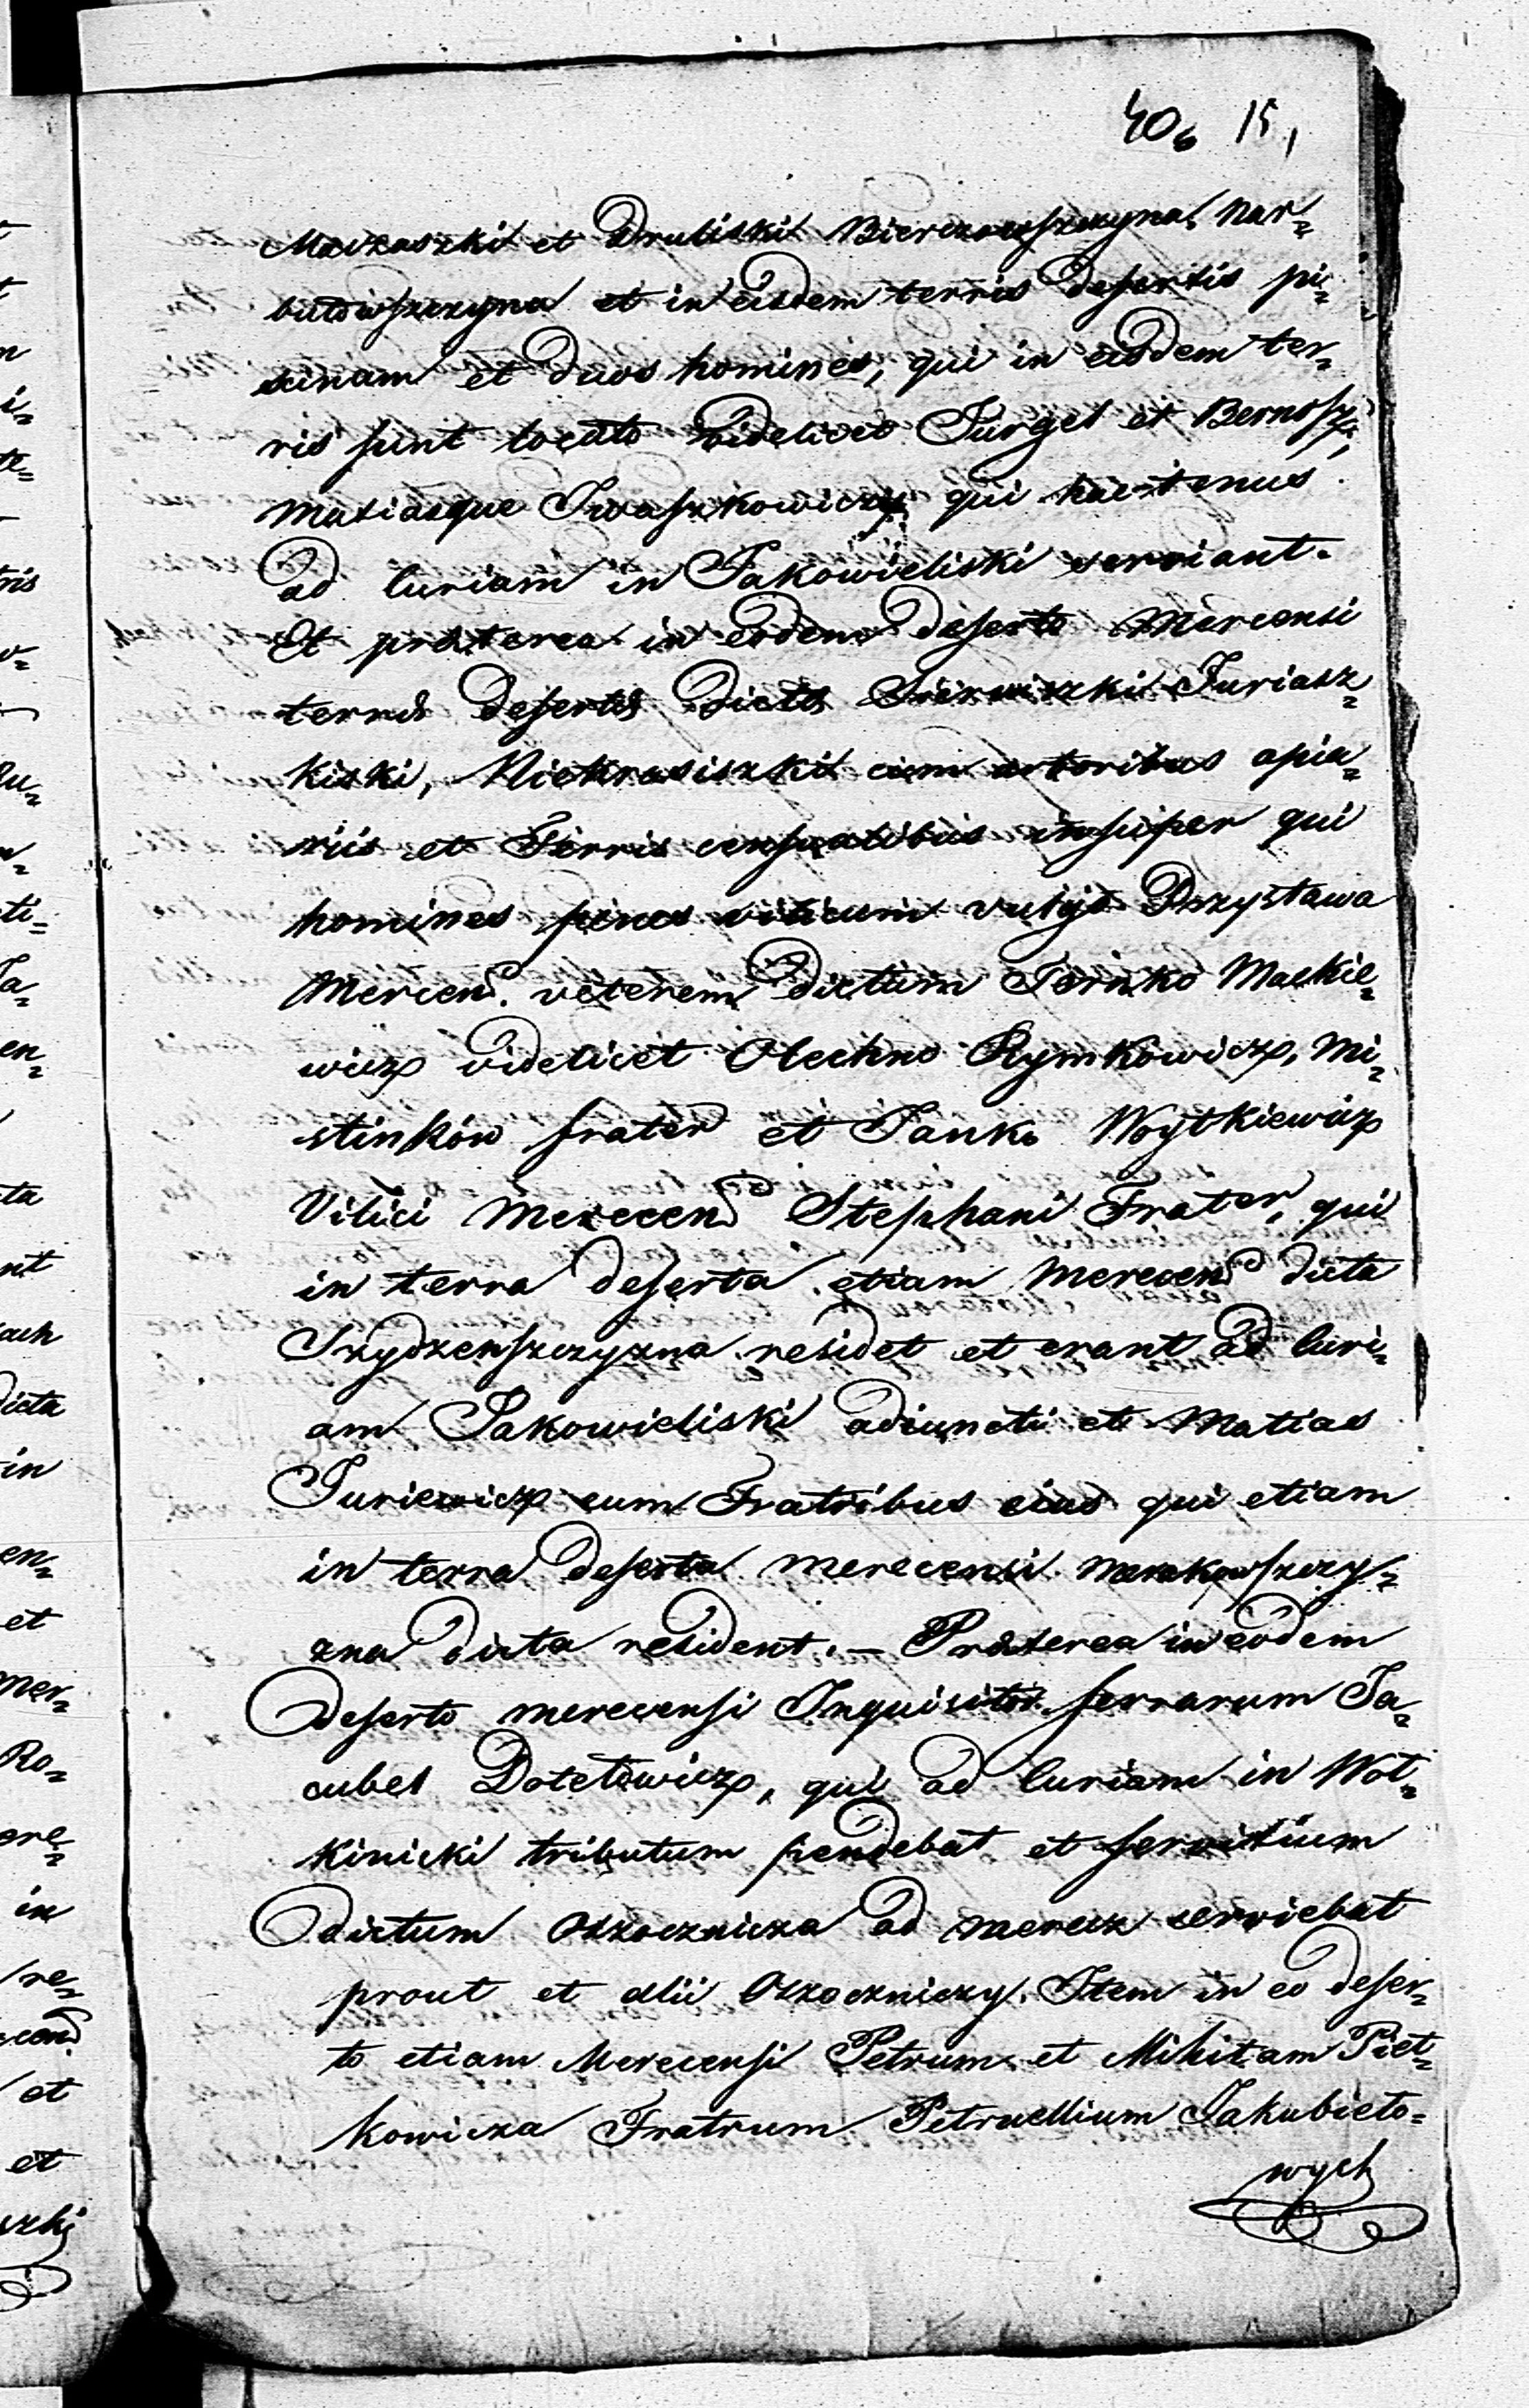 406 15,
et Druliski Bierczowszczyna, Nar=
butowszczyna et in eisdem terris desertis pi=
scinam et duos homines, qui in eisdem ter=
ris sunt locato videlicet Jurgel et Bernosz,
Matiasque Iwaszkowiczy qui hactenus
ad Curiam in Jakowieliski serviant.
Et præterea in eodem deserto Mercensi
terras desertas dictas Juriasz=
kiski, cum arboribus apia=
riis et Terris censualibus insuper qui
homines penes vilicum vulgo Przystawa
Mercen. veterem dictum Mackie=
wicz videlicet Olechno Rymkowicz, Mi=
stinkow frater et Janko Woytkiewicz
Vilici Merecen Stephani Frater, qui
in terra deserta etiam Merecen dicta
residet et erant ad Curi=
am Jakowieliski adiuncti et Matias
Juriewicz cum Fratribus eius qui etiam
in terra deserta Merecensi
zna dicta resident. — Præterea in eodem
deserto merecensi Inquisitor ferrarum Ja=
cubel Dotetowicz, qui ad Curiam in Wot=
kinicki tributum pendebat et servitium
dictum Oszocznicza ad merecz serviebat
prout et alii Oszoczniczy. Item in eo deser=
to etiam Merecensi Petrum et Mikitam Piet=
kowicza Fratrum Petruellium Jakubieto=
wych